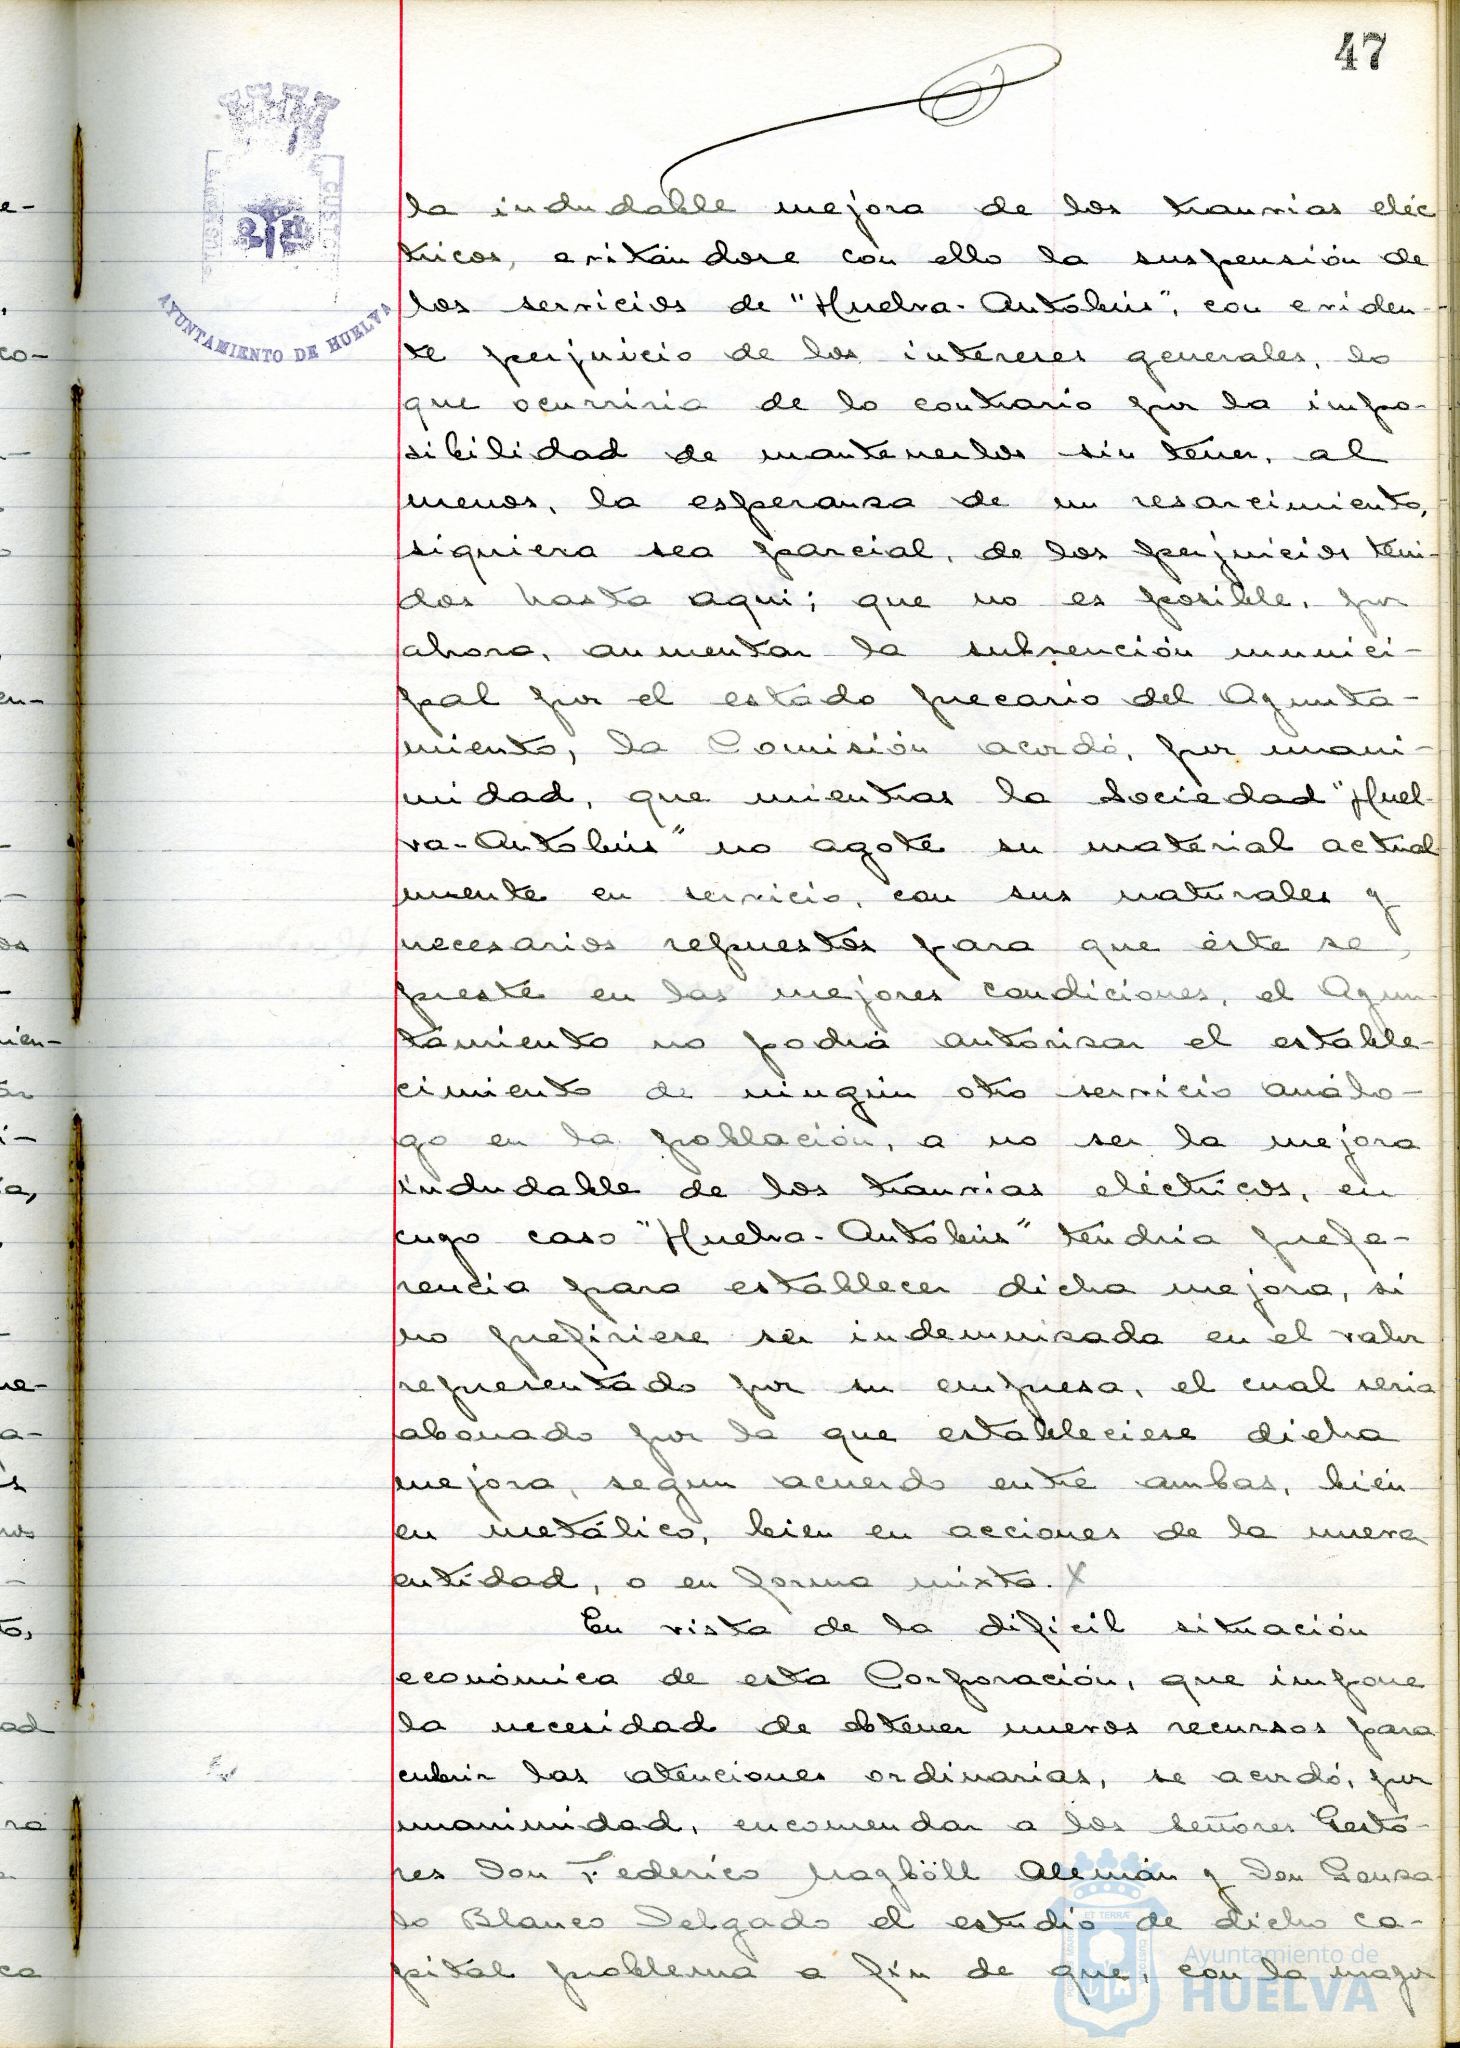 47
AYUNTAMIENTO DE HUELVA
la indudable mejora de los tranvias eléc
tricos, evitándose con ello la suspensión de
los servicios de "Huelva-Autobús", con eviden-
te perjuicio de los intereses generales, lo
que ocurriria de lo contrario por la impo-
sibilidad de mantenerlos sin tener, al
menos, la esperanza de un resarcimiento,
siquiera sea parcial, de los perjuicios teni-
dos hasta aqui; que no es posible, por
ahora, aumentar la subvención munici-
pal por el estado precario del Ayunta-
miento, la Comisión acordó, por unani-
midad, que mientras la Sociedad "Huel-
va-Autobús" no agote su material actual
mente en servicio, con sus naturales y
necesarios repuestos para que éste se
preste en las mejores condiciones, el Ayun-
tamiento no podrá autorizar el estable-
cimiento de ningún otro servicio análo-
go en la población, a no ser la mejora
indudable de los tranvias eléctricos, en
cuyo caso "Huelva-Autobús" tendria prefe-
rencia para establecer dicha mejora, si
no prefiriese ser indemnizada en el valor
representado por su empresa, el cual seria
abonado por la que estableciese dicha
mejora, segun acuerdo entre ambas, bién
en metálico, bien en acciones de la nueva
entidad, o en forma mixta. X
En vista de la dificil situación
económica de esta Corporación, que impone
la necesidad de obtener nuevos recursos para
cubrir las atenciones ordinarias, se acordó, por
unanimidad, encomendar a los señores Gesto-
res Don Federico Magböll Alemán y Don Gonza
lo Blanco Delgado el estudio de dicho ca-
pital problema a fin de que, con la mayor
Ayuntamiento de
HUELVA